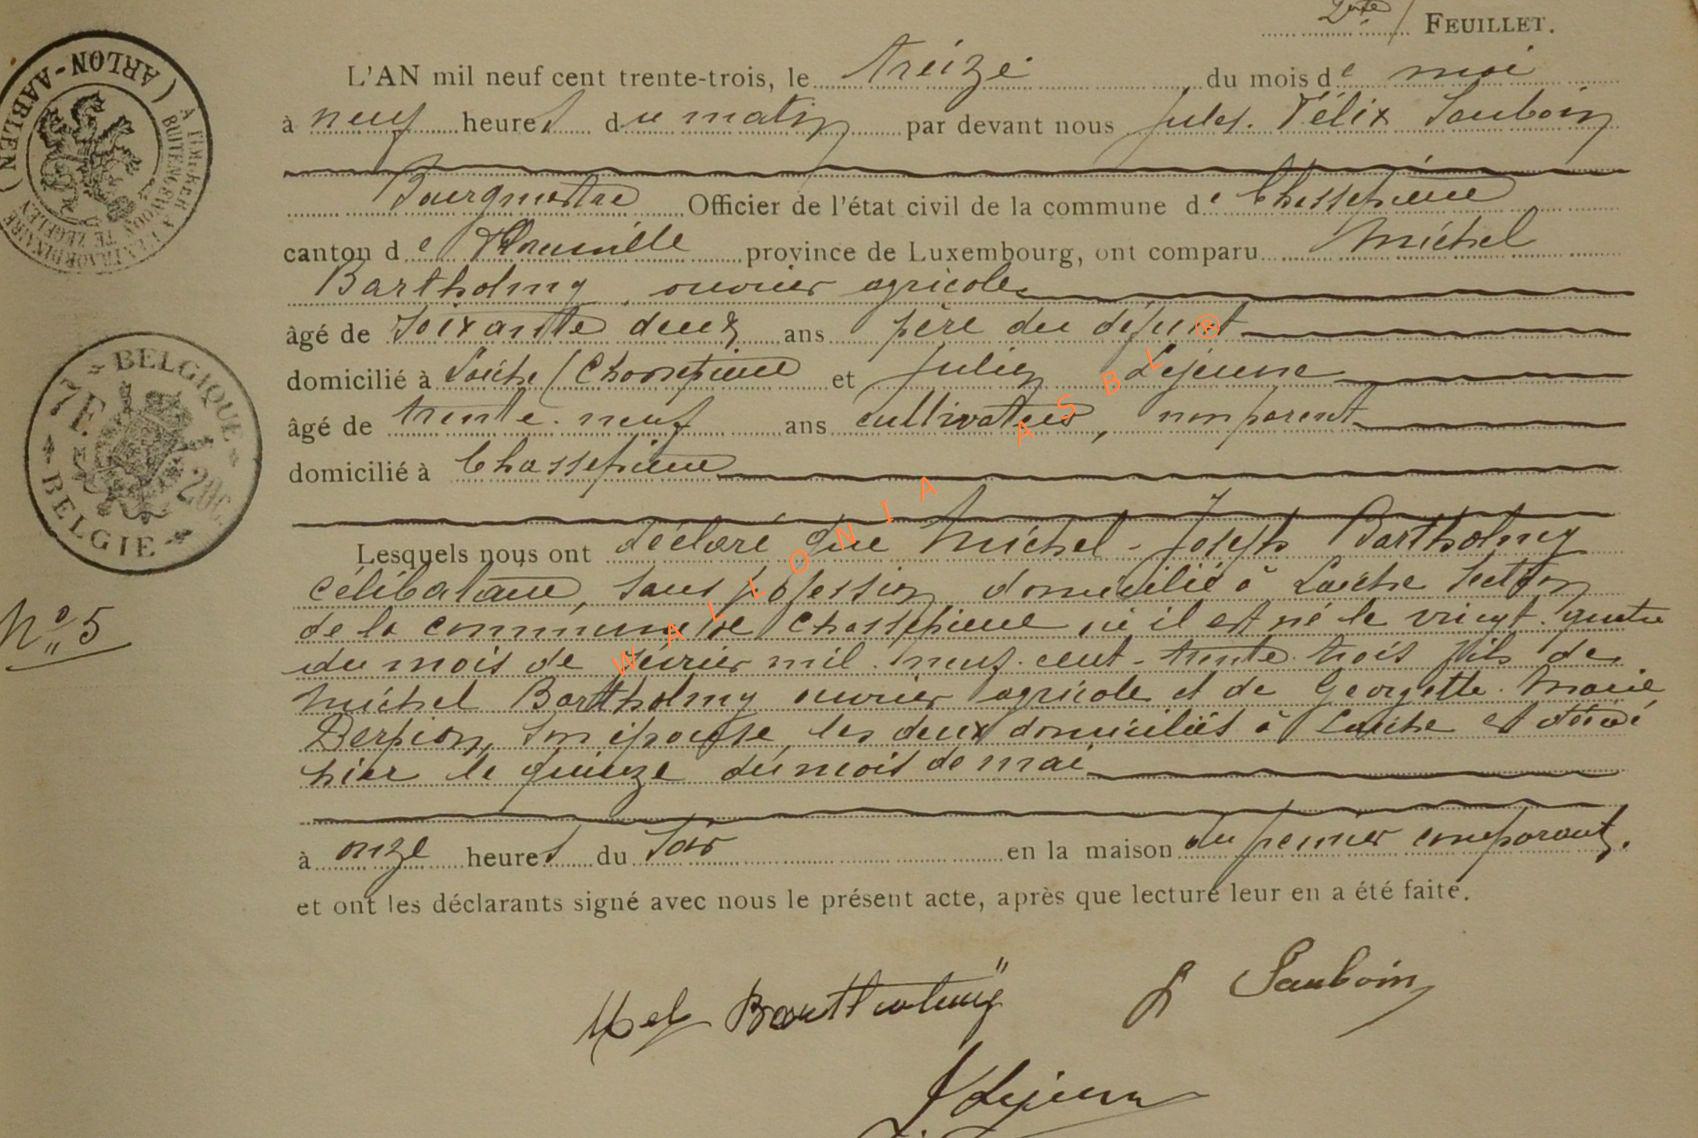 2me / FEUILLET.
L'AN mil neuf cent trente-trois, le treize du mois de mai
à neuf heures du matin par devant nous Jules. Félix Sauboin
Bourgmestre Officier de l'état civil de la commune de Chassepierre
canton de Florenville province de Luxembourg, ont comparu Michel
Bartholmy, ouvrier agricole
âgé de soixante deux ans père du défunt
domicilié à Laiche / Chassepierre et Julien Lejeune
âgé de trente. neuf ans cultivateur, non parent
domicilié à Chassepierre
Lesquels nous ont déclaré que Michel - Joseph Bartholmy
célibataire, sans profession domicilié à Laiche section
de la commune de Chassepierre où il est né le vingt. quatre
du mois de février mil. neuf. cent - trente. trois fils de
Michel Bartholmy ouvrier agricole et de Georgette. Marie
Derpion, son épouse, les deux domiciliés à Laiche est décédé
hier le quinze du mois de mai
à onze heures du soir en la maison du premier comparant.
et ont les déclarants signé avec nous le présent acte, après que lecture leur en a été faite.
Mel Bartholmy Sauboin
J Lejeune
N° 5
(ARLON-AARLEN)
BELGIQUE
7F.
20C.
BELGIE
WALLONIA ASBL ®